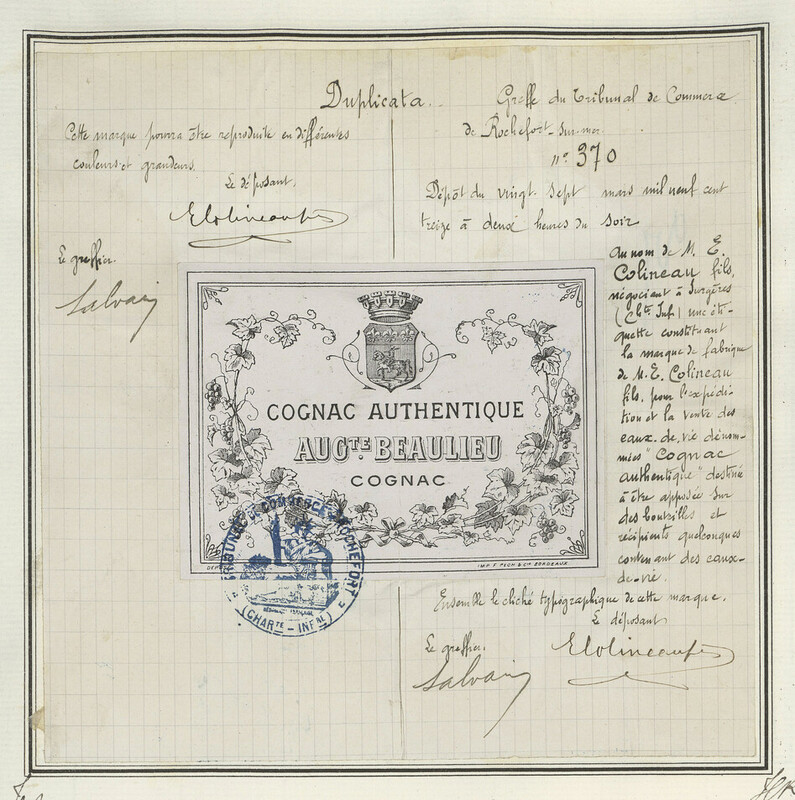 Duplicata.
Cette marque pourra être reproduite en différentes
couleurs et grandeurs.
Le déposant,
EColineaufils
Le greffier.
Salvain
Greffe du Tribunal de Commerce
de Rochefort-sur-mer
n° 370
Dépôt du vingt-sept mars mil neuf cent
treize à deux heures du soir
au nom de M. E.
Colineau fils,
négociant à Surgères
(Chte Infre) une éti-
quette constituant
la marque de fabrique
de M. E. Colineau
fils, pour l'expédi-
tion et la vente des
eaux-de-vie dénom-
mées "Cognac
authentique" destinée
à être apposée sur
des bouteilles et
récipients quelconques
contenant des eaux-
de-vie.
COGNAC AUTHENTIQUE
AUGTE BEAULIEU
COGNAC
IMP. F. PECH & CIE BORDEAUX
TRIBUNAL DE COMMERCE ROCHEFORT
(CHARTE - INFRE)
Ensemble le cliché typographique de cette marque.
Le déposant
Le greffier.
EColineaufils
Salvain